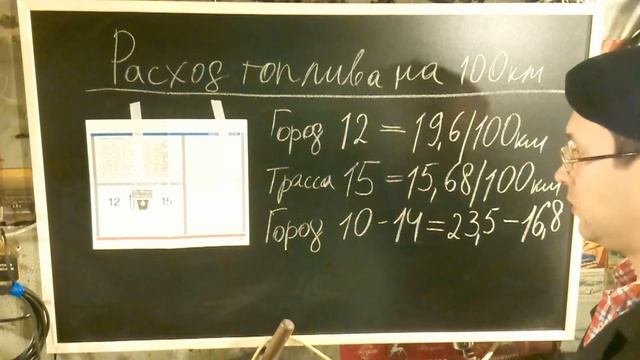 Расход топлива на 100км
Город 12 = 19,6/100км
Трасса 15 = 15,68/100км
Город 10-14 = 23,5-16,8
12 15